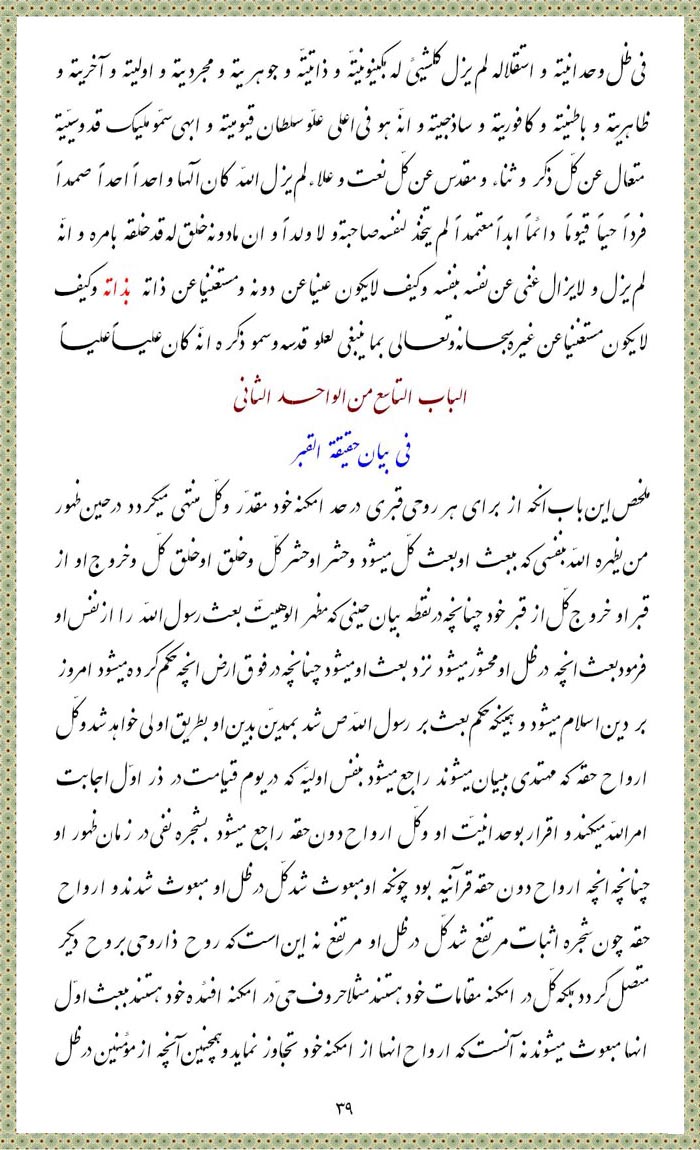 فی ظل وحدانیته و استقلاله لم یزل کلشییٔ له بکینونیته و ذاتیته و جوهریته و مجردیته و اولیته و آخریته و
ظاهریته و باطنیته و کافوریته و ساذجیته و انّه هو فی اعلی علوّ سلطان قیومیته و ابهی سموّ ملیک قدوسیّته
متعال عن کلّ ذکر و ثناء و مقدس عن کلّ نعت و علاء لم یزل اللّه کان الٓها واحداً احداً صمداً
فرداً حیاً قیوماً دائماً ابداً معتمداً لم یتخذ لنفسه صاحبة و لا ولداً و ان مادونه خلق له قد خلقه بامره و انّه
لم یزل و لایزال غنی عن نفسه بنفسه وکیف لایکون غنیا عن دونه ومستغنیا عن ذاته بذاته وکیف
لایکون مستغنیا عن غیره سبحانه و تعالی بما ینبغی لعلو قدسه وسمو ذکره انّه کان علیاً علیاً
الباب التاسع من الواحد الثانی
فی بیان حقیقة القبر
ملخص این باب آنکه از برای هر روحی قبری در حد امکنه خود مقدّر وکلّ منتهی میگردد درحین ظهور
من یظهره اللّه بنفسی که ببعث او بعث کلّ میشود وحشر اوحشر کلّ وخلق اوخلق کلّ وخروج او از
قبر او خروج کلّ از قبر خود چنانچه در نقطه بیان حینی که مظهر الوهیّت بعث رسول اللّه را از نفس او
فرمود بعث آنچه در ظل او محشور میشود نزد بعث او میشود چنانچه در فوق ارض انچه حکم کرده میشود امروز
بر دین اسلام میشود و همینکه حکم بعث بر رسول اللّه ص شد بمدیّن بدین او بطریق اولی خواهد شد وکلّ
ارواح حقه که مهتدی ببیان میشوند راجع میشود بنفس اولیّه که در یوم قیامت در ذر اوّل اجابت
امراللّه میکند و اقرار بوحدانیّت او وکلّ ارواح دون حقه راجع میشود بشجره نفی در زمان ظهور او
چنانچه انچه ارواح دون حقه قرآنیه بود چونکه او مبعوث شد کلّ در ظل او مبعوث شدند و ارواح
حقه چون شجره اثبات مرتفع شد کلّ در ظل او مرتفع نه این است که روح ذاروحی بروح دیگر
متصل گردد بلکه کلّ در امکنه مقامات خود هستند مثلا حروف حیّ در امکنه افئده خود هستند ببعث اوّل
انها مبعوث میشوند نه آنست که ارواح انها از امکنه خود تجاوز نماید و همچنین آنچه از مؤمنین در ظل
۳۹